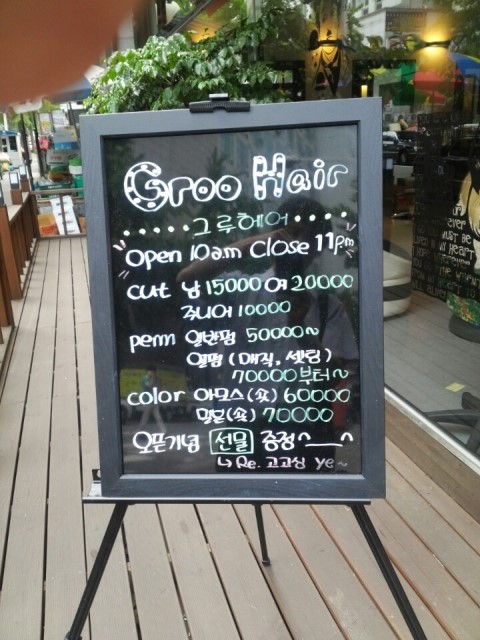 Groo Hair
그루헤어
Open 10am Close 11pm
cut 남 15000 여 20000
주니어 10000
perm 일반펌 50000~
열펌 (매직, 셋팅)
70000부터~
color 아모스(숏) 60000
밀본(숏) 70000
오픈기념 선물 증정^__^
↳ Re. 고고싱 ye~
EVER
MUST BE
MY HEART